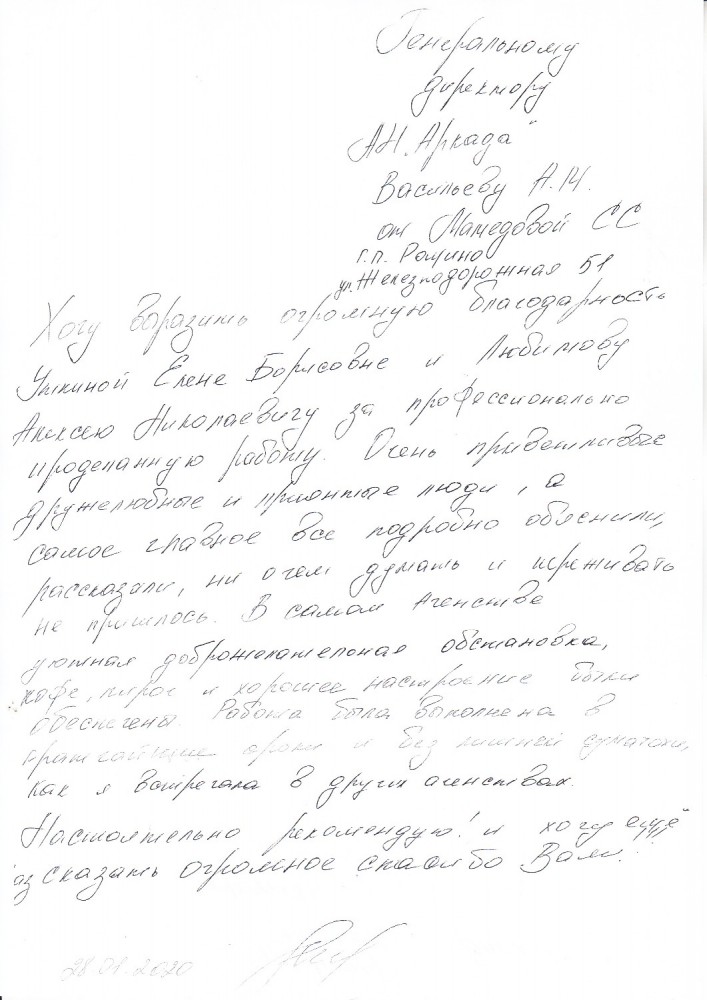 Генеральному
директору
АН „Аркада"
Васильеву А.М.
от Мамедовой СС
г.п. Рощино
ул. Железнодорожная 51
Хочу выразить огромную благодарность
Уткиной Елене Борисовне и Любимову
Алексею Николаевичу за профессионально
проделанную работу. Очень приветливые
дружелюбные и приятные люди, а
самое главное все подробно объяснили,
рассказали, ни о чем думать и переживать
не пришлось. В самом Агенстве
уютная доброжелательная обстановка,
кофе, пирог и хорошее настроение были
обеспечены. Работа была выполнена в
кратчайшие сроки и без лишней суматохи,
как я встречала в других агенствах.
Настоятельно рекомендую! и хочу ещё
раз сказать огромное спасибо Вам!
28.01.2020